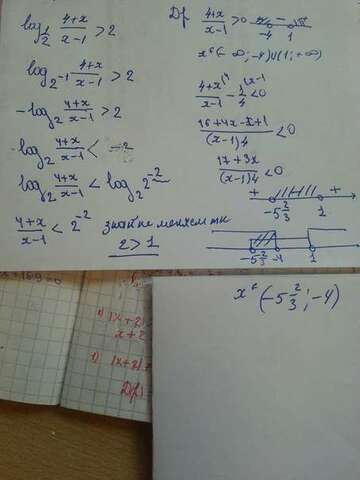 log_{1/2} (4+x)/(x-1) > 2
log_{2^{-1}} (4+x)/(x-1) > 2
-log_2 (4+x)/(x-1) > 2
log_2 (4+x)/(x-1) < -2
log_2 (4+x)/(x-1) < log_2 2^{-2}
(4+x)/(x-1) < 2^{-2} знак не меняем тк
2>1
(4+x)/(x-1) > 0
-4 1
x ∈ (-∞; -4) ∪ (1; +∞)
(4+x)/(x-1) - 1/4 < 0
(16+4x-x+1)/((x-1)4) < 0
(17+3x)/((x-1)4) < 0
+ - +
-5 2/3 1
-5 2/3 -4 1
x ∈ (-5 2/3; -4)
1) |x+2|
x+2